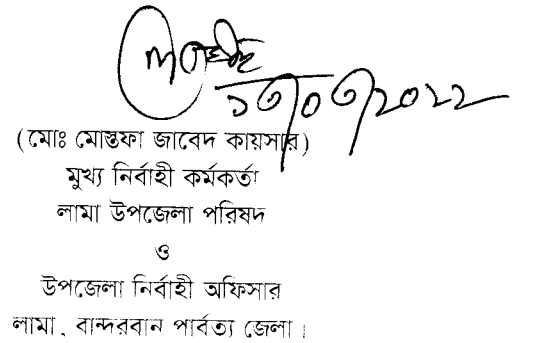 ১৩/০৩/২০২২
(মোঃ মোস্তফা জাবেদ কায়সার)
মুখ্য নির্বাহী কর্মকর্তা
লামা উপজেলা পরিষদ
ও
উপজেলা নির্বাহী অফিসার
লামা, বান্দরবান পার্বত্য জেলা।